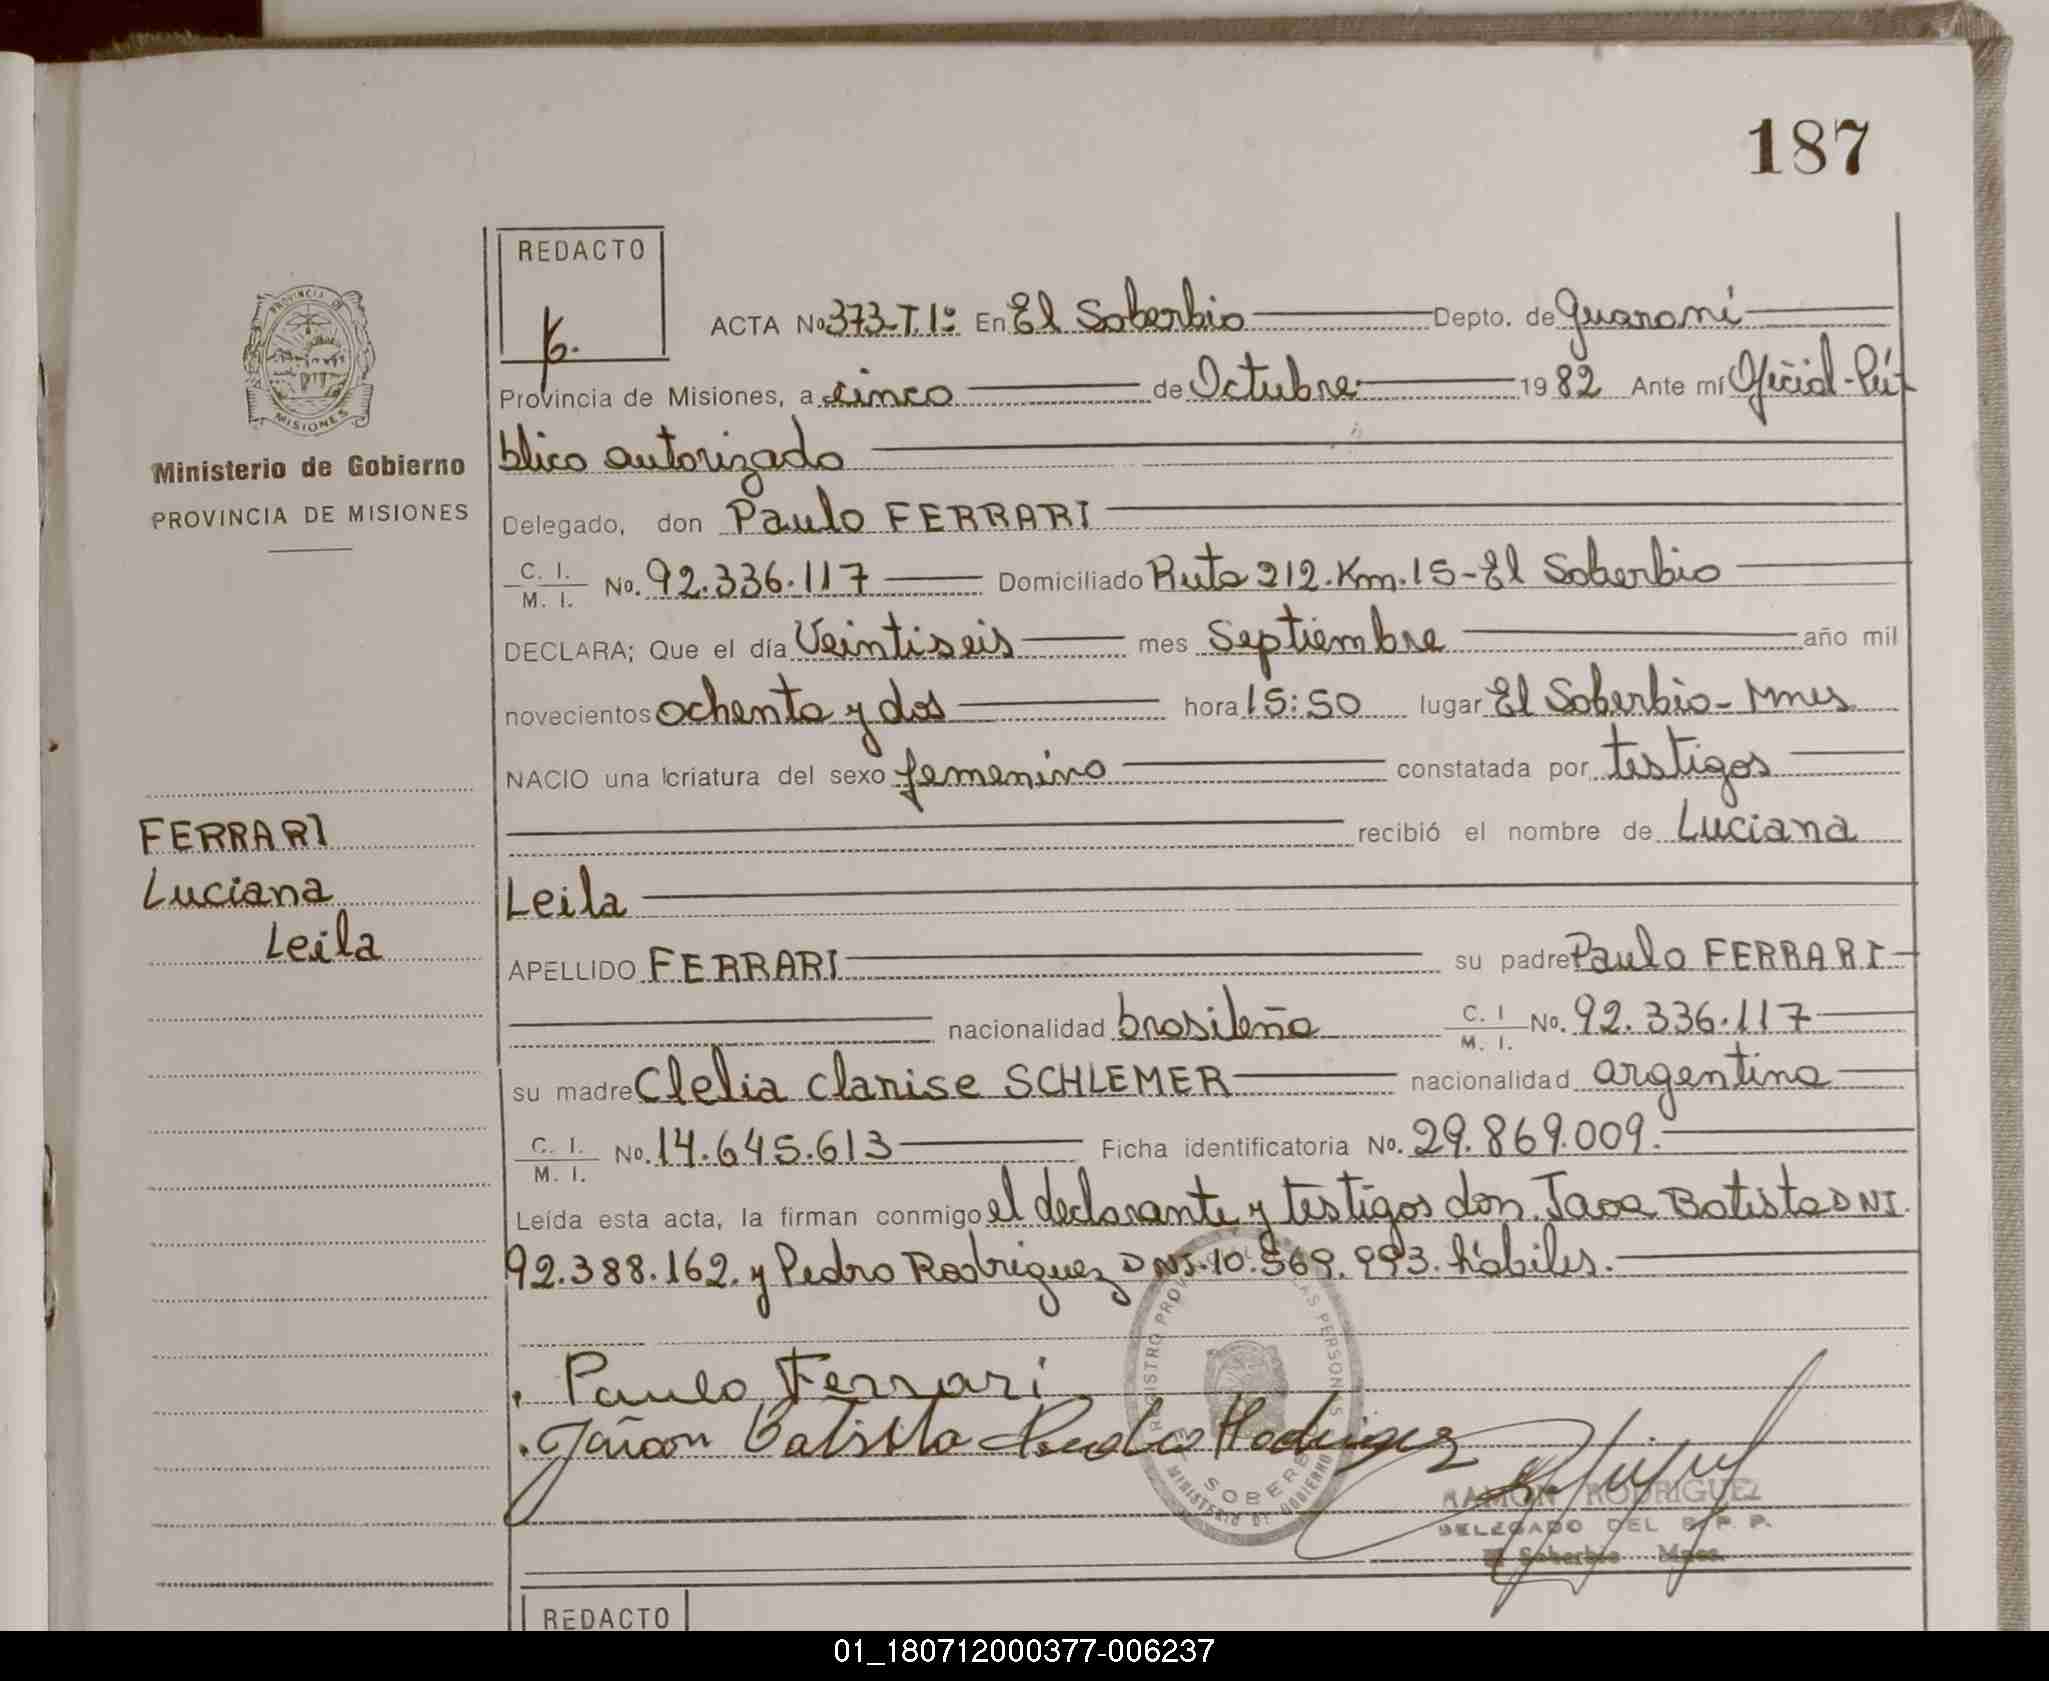 187
REDACTO
PROVINCIA DE
MISIONES
Ministerio de Gobierno
PROVINCIA DE MISIONES
FERRARI
Luciana
Leila
ACTA No 373-T.1º En El Soberbio Depto. de Guaraní
Provincia de Misiones, a cinco de Octubre 1982 Ante mí Oficial-Pú
blico autorizado
Delegado, don Paulo FERRARI
C. I. M. I. No. 92.336.117 Domiciliado Ruta 212.Km.15-El Soberbio
DECLARA; Que el día Veintiseis mes Septiembre año mil
novecientos ochenta y dos hora 15:50 lugar El Soberbio-Mnes
NACIO una criatura del sexo femenino constatada por testigos
recibió el nombre de Luciana
Leila
APELLIDO FERRARI su padre Paulo FERRARI
nacionalidad brasileña C. I M. I. No. 92.336.117
su madre Clelia Clarise SCHLEMER nacionalidad argentina
C. I. M. I. No. 14.645.613 Ficha identificatoria No. 29.869.009.
Leída esta acta, la firman conmigo el declarante y testigos don Jaoa Batista DNI.
92.388.162. y Pedro Rodriguez DNI.10.569.993. hábiles.
Paulo Ferrari
Batista Pedro Rodriguez
REGISTRO LAS PERSONAS
SOBERB
MINISTERIO DE GOBIERNO
RAMON RODRIGUEZ
DELEGADO DEL R. P. P.
Soberbio Mnes.
REDACTO
01_180712000377-006237